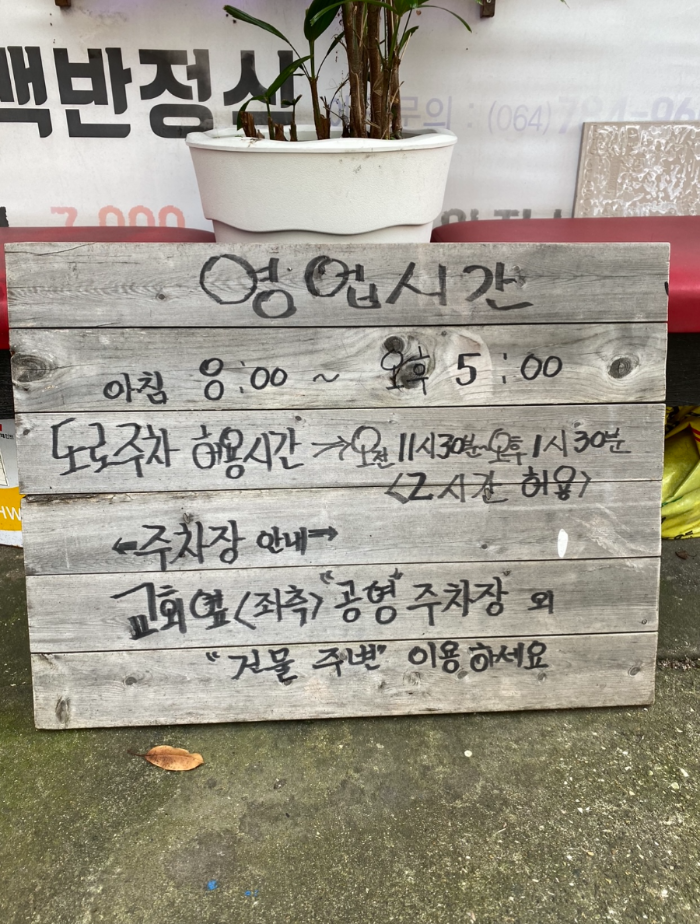 백반정식
문의 : (064)
7,000
영업시간
아침 8:00 ~ 오후 5:00
도로주차 허용시간 → 오전 11시30분~오후 1시30분
<2시간 허용>
←주차장 안내→
교회옆<좌측> "공영" 주차장 외
"건물 주변" 이용하세요